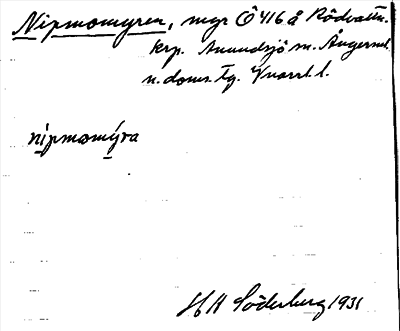 Nipmomyren, myr Ö 416 å Rödvattn.
krp. Anundsjö sn. Ångerml.
n. doms. tg. Vnorrl. l.
nipmomyra
H H Söderberg 1931